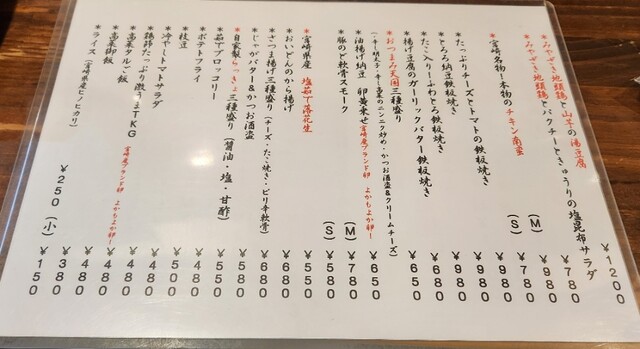 *みやざき地頭鶏と山芋の湯豆腐 ¥1200
*みやざき地頭鶏とパクチーときゅうりの塩昆布サラダ ¥780
*宮崎名物!本物のチキン南蛮 (M) ¥980
(S) ¥780
*たっぷりチーズとトマトの鉄板焼き ¥980
*とろろ納豆鉄板焼き ¥980
*たこ入りーふわとろ鉄板焼き ¥680
*揚げ豆腐のガーリックバター鉄板焼き ¥650
*おつまみ天国三種盛り ¥650
高菜のニンニク炒め・かつお酒盗&クリームチーズ)
*油揚げ納豆 卵黄乗せ 宮崎産ブランド卵 よかもよか卵! (M) ¥780
*豚のど軟骨スモーク (S) ¥580
*宮崎県産 塩茹で落花生 ¥550
*おいどんのから揚げ ¥680
*さつま揚げ三種盛り(チーズ・たこ焼き・ピリ辛軟骨) ¥680
*じゃがバター&かつお酒盗 ¥550
*自家製らっきょう三種盛り(醤油・塩・甘酢) ¥550
*茹でブロッコリー ¥480
*ポテトフライ ¥500
*枝豆 ¥480
*冷やしトマトサラダ ¥480
*鶏節たっぷり激うまTKG 宮崎産ブランド卵 よかもよか卵! ¥480
*高菜タルご飯 ¥480
*高菜御飯 ¥380
*ライス(宮崎県産ヒノヒカリ) ¥250 (小) ¥150